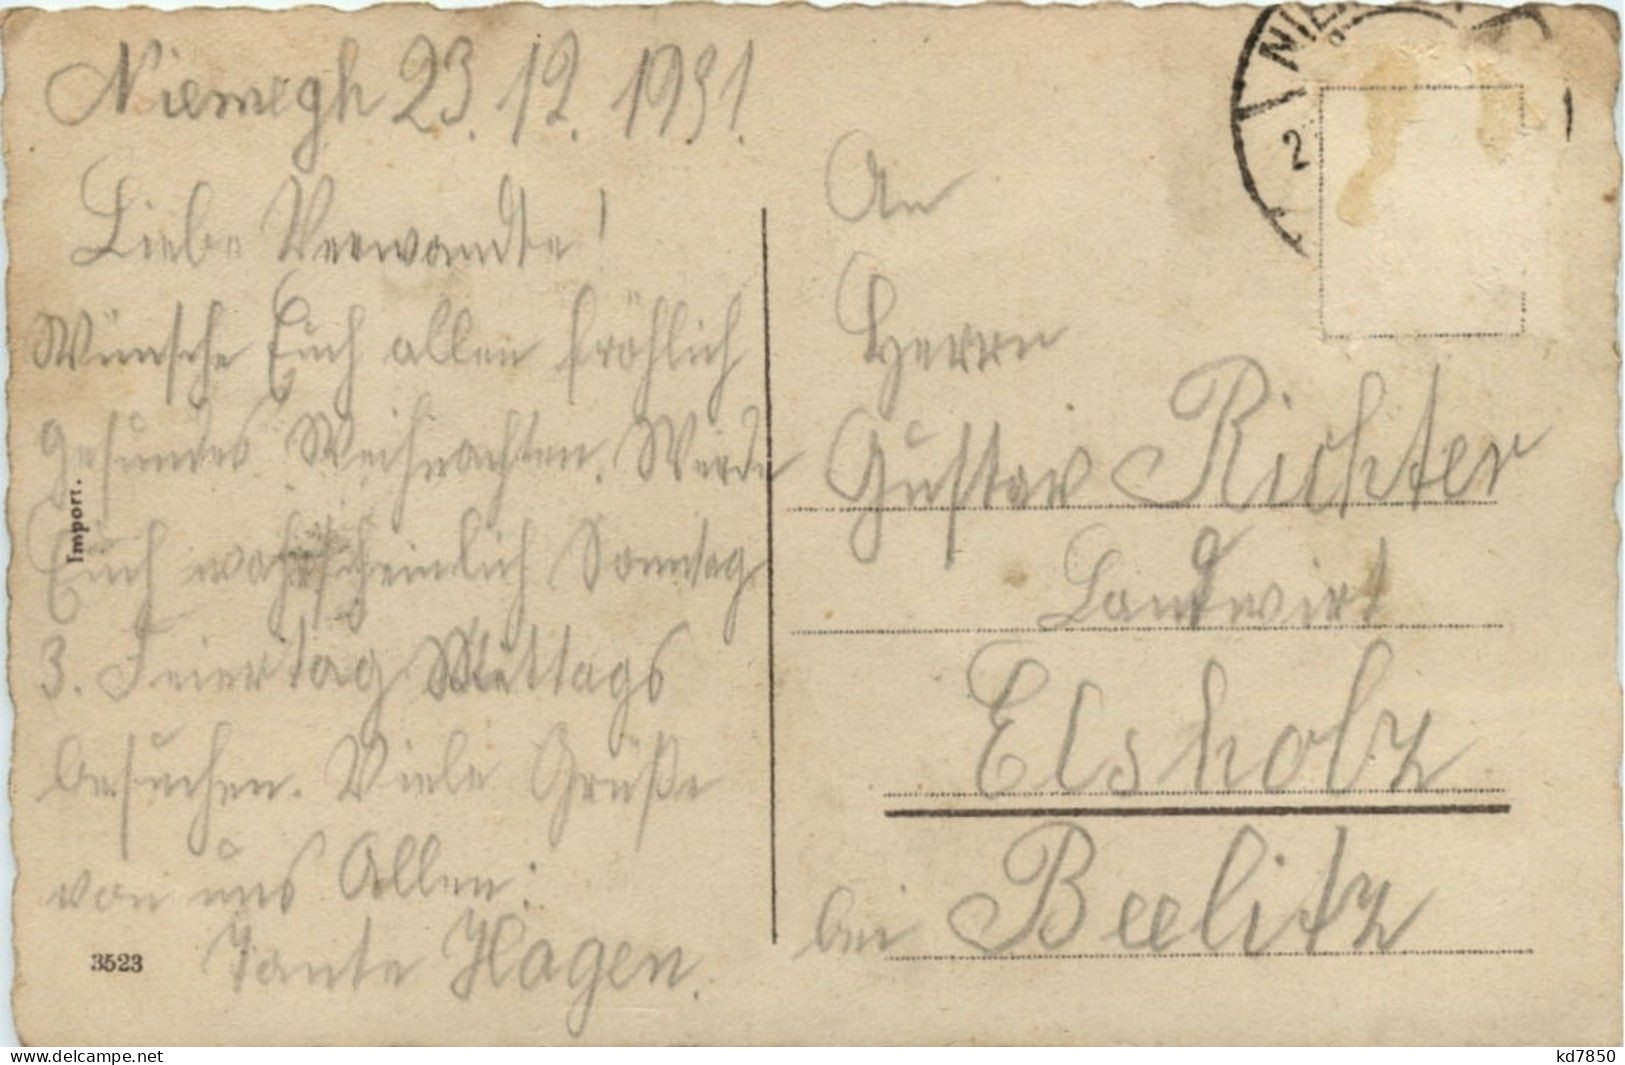 Niemegk 23. 12. 1931.
Liebe Verwandte!
Wünsche Euch allen fröhlich
gesundes Weihnachten. Werde
Euch wahrscheinlich Sonntag
3. Feiertag Mittags
besuchen. Viele Grüße
von uns Allen:
Tante Hagen.
Import.
3523
An
Herrn
Gustav Richter
Landwirt
Elsholz
bei Beelitz
www.delcampe.net
kd7850